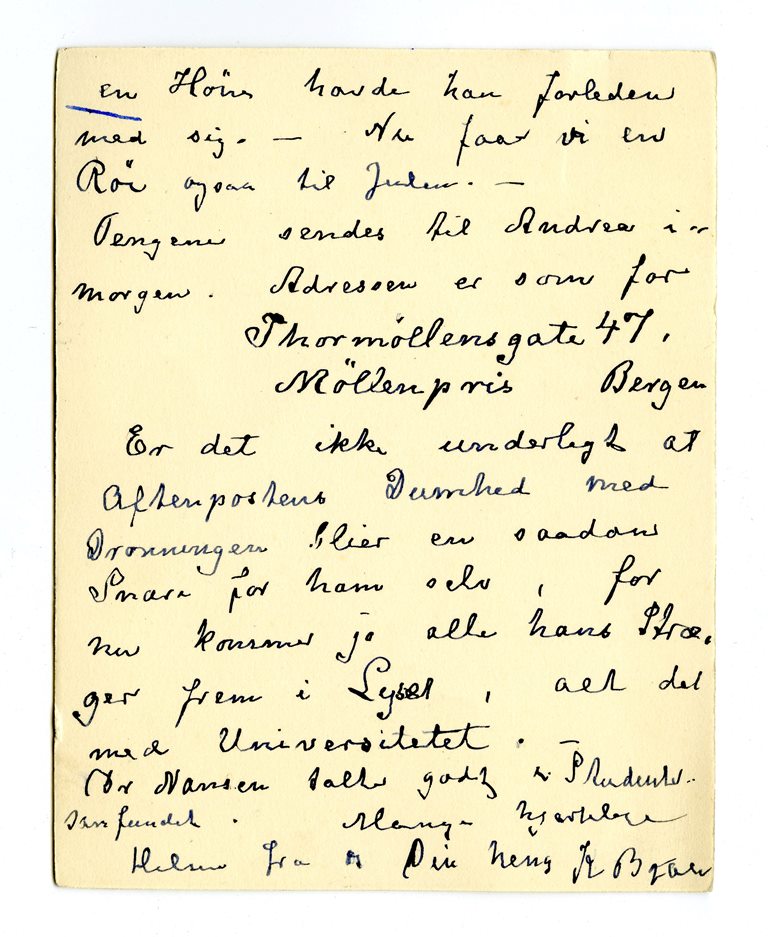 en Höne havde han forleden
med sig. — Nu faar vi en
Röi ogsaa til Julen. —
Pengene sendes til Andrea i-
morgen. Adressen er som før
Thormöllensgate 47,
Möllenpris Bergen
Er det ikke underligt at
Aftenpostens Dumhed med
Dronningen blier en saadan
Snare for ham selv, for
nu kommer ja alle hans Stræ-
ger frem i Lyset, alt det
med Universitetet. —
Dr Nansen talte godt i Studenter-
samfundet. Mange hjertelige
Hilsen fra Din heng